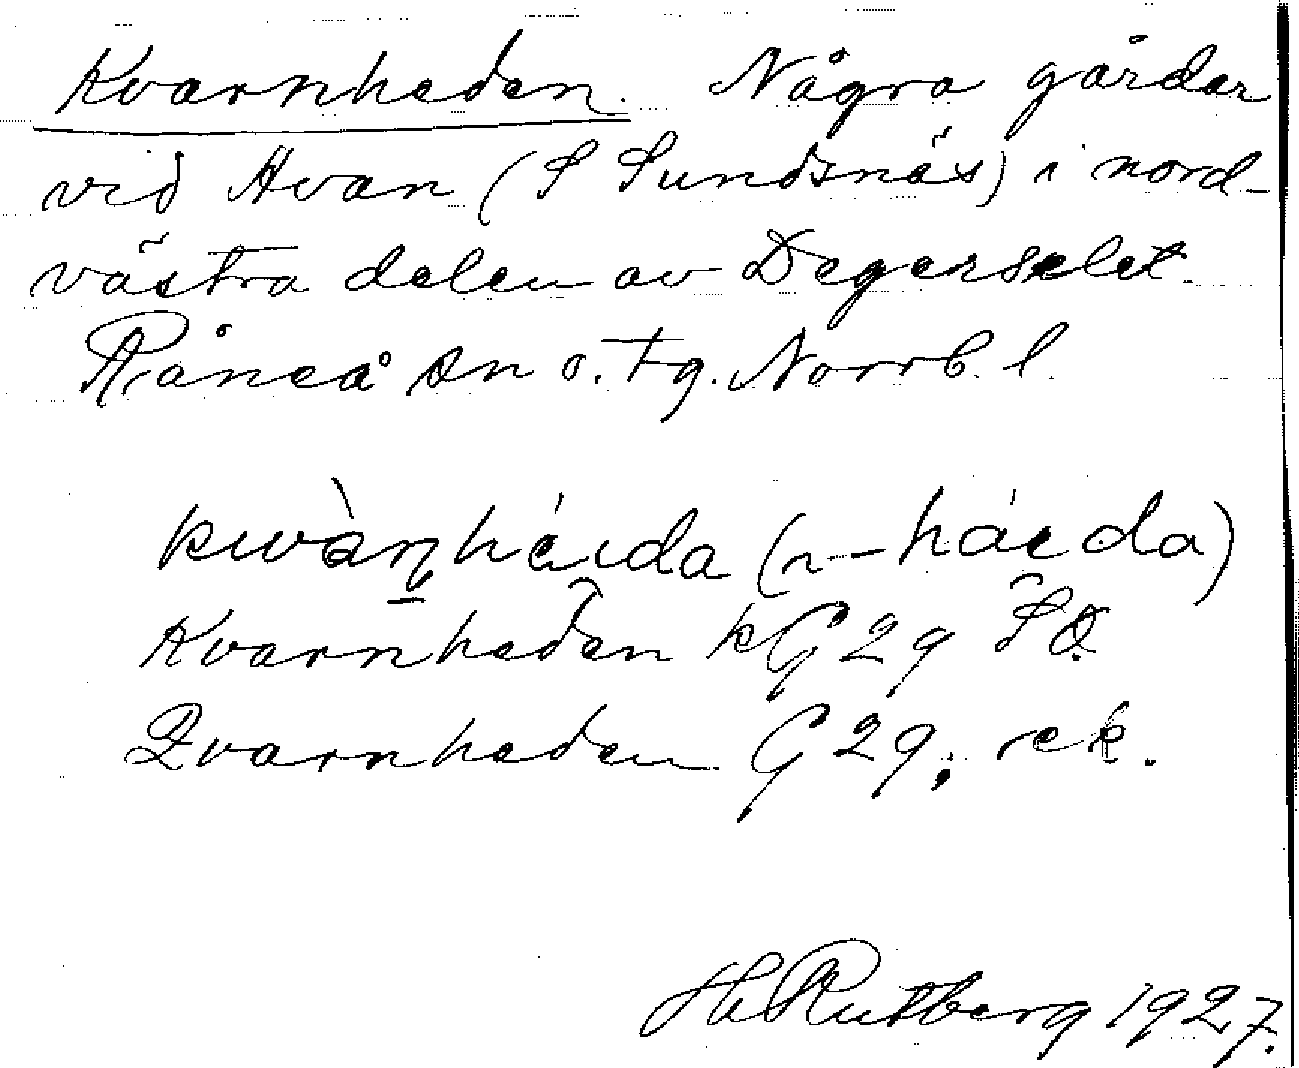 Kvarnheden. Några gårdar
vid Avan (S Sundsnäs) i nord-
västra delen av Degerselet.
Råneå sn o. tg. Norrb. l.
kwàṉhéida (~-háeda)
Kvarnheden kG 29 SO
Qvarnheden G 29; rek.
Hb Rutberg 1927.